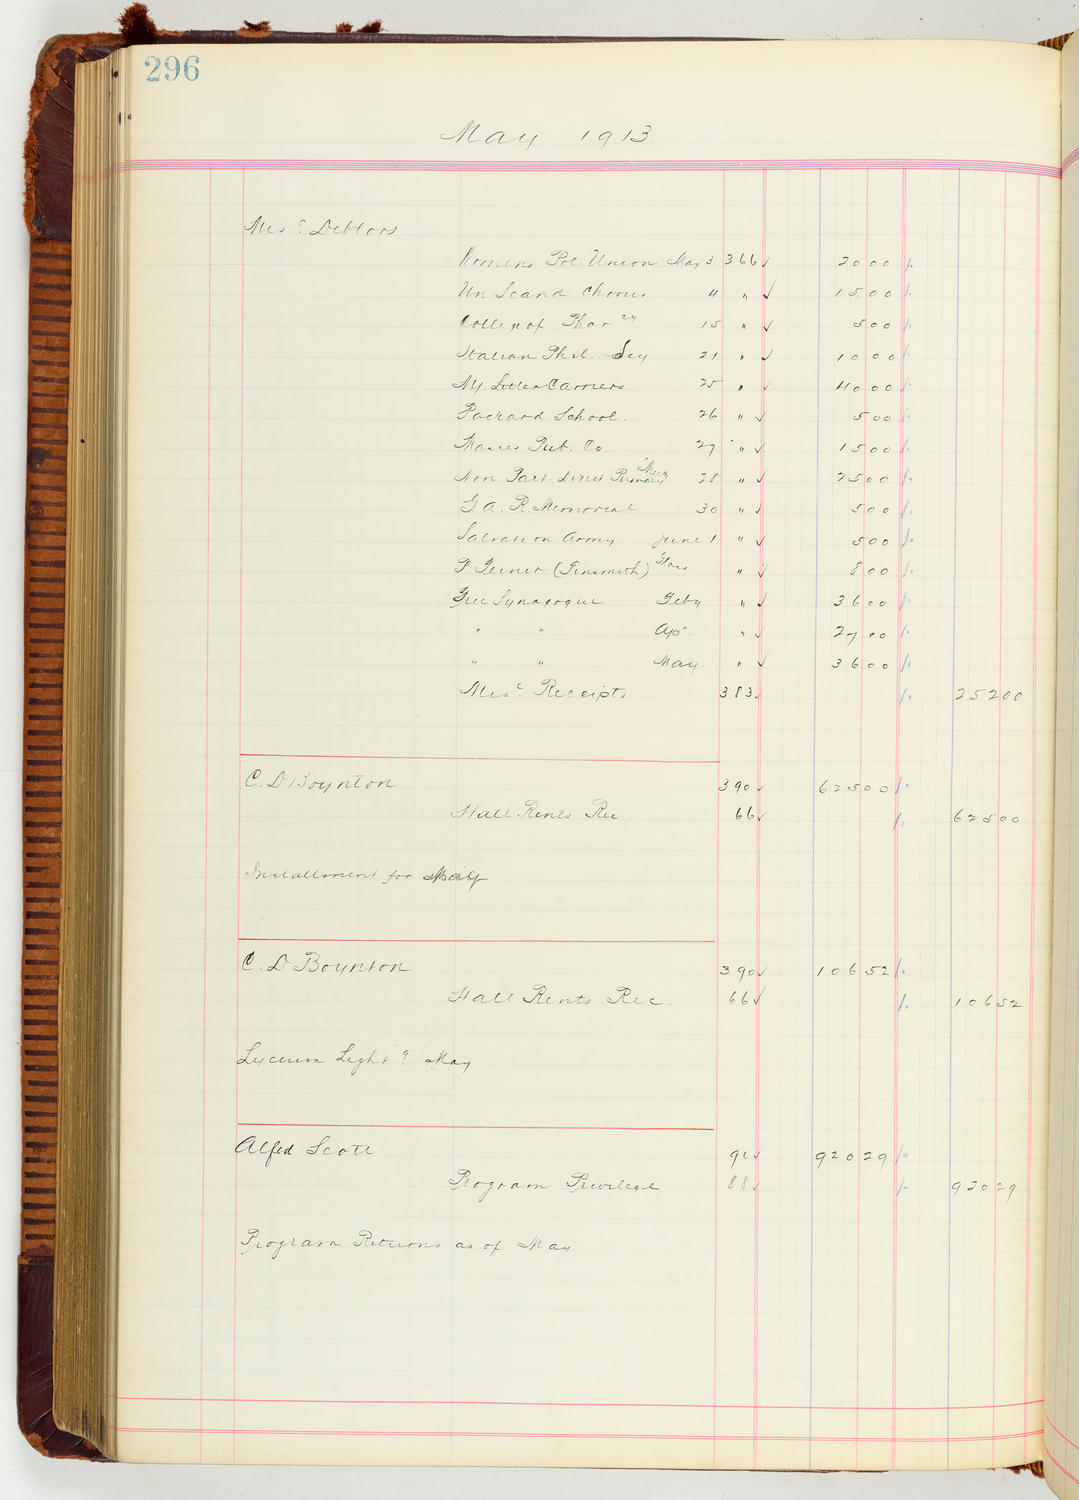 296
May 1913
Misc Debtors
Womens Pol. Union May 3 366 ✓ 20 00
Un Scand Chorus 4 " ✓ 15 00
College of Phar cy 15 " ✓ 5 00
Italian Phil. Scy 21 " ✓ 10 00
N.Y. Letter Carriers 25 " ✓ 40 00
Packard School. 26 " ✓ 5 00
Pub. Co. 27 " ✓ 15 00
Non Part. Direct Primary Meeg 28 " ✓ 25 00
G. A. R. Memorial 30 " ✓ 5 00
Salvation Army June 1 " ✓ 5 00
P (Tinsmith) " ✓ 8 00
Free Synagogue Feby " ✓ 36 00
" " Ap. " ✓ 27 00
" " May " ✓ 36 00
Misc Receipts 383 ✓ 252 00
C. D Boynton 390 ✓ 625 00
Hall Rents Rec. 66 ✓ 625 00
Installment for May
C. D Boynton 390 ✓ 106 52
Hall Rents Rec. 66 ✓ 106 52
Lyceum Light g May
Alfed Scott 91 ✓ 920 29
Program Privilege 88 ✓ 920 29
Program Returns as of May